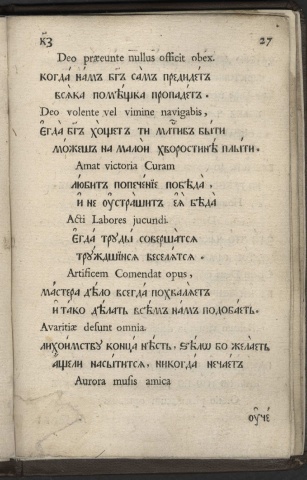 к҃з 27
Deo præeunte nullus officit obex.
когда́ на́мъ бг҃ъ са́мъ предидетъ
всѧ́ка помѣ́шка пропаде́тъ.
Deo volente vel vimine navigabis,
Є҆гда̀ бг҃ъ хо́щетъ ти мл҃тивъ бы́ти
мо́жешъ на малои хворостинѣ плы́ти.
Amat victoria Curam
лю́битъ попече́нїе побѣ́да,
и҆ не ᲂу҆страши́тъ є҆ѧ̀ бѣда̀
Acti Labores jucundi.
Є҆гда̀ труды̀ соверша́тсѧ
трꙋ́ждшїисѧ веселѧ́тсѧ.
Artificem Comendat opus,
ма́стера дѣ́ло всегда̀ похвалѧ́етъ
и҆ та́ко дѣ́лать всѣ́мъ на́мъ подоба́етъ.
Avaritiæ desunt omnia.
лихои́мствꙋ конца̀ нѣ́сть, ѕѣлѡ̀ бо жела́етъ
а́щели насы́титсѧ, никогда̀ не ча́етъ
Aurora musis amica
ᲂу҆че́